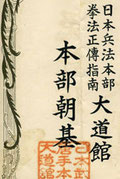 日本兵法本部
拳法正傳指南
大道館
本部朝基
大道館